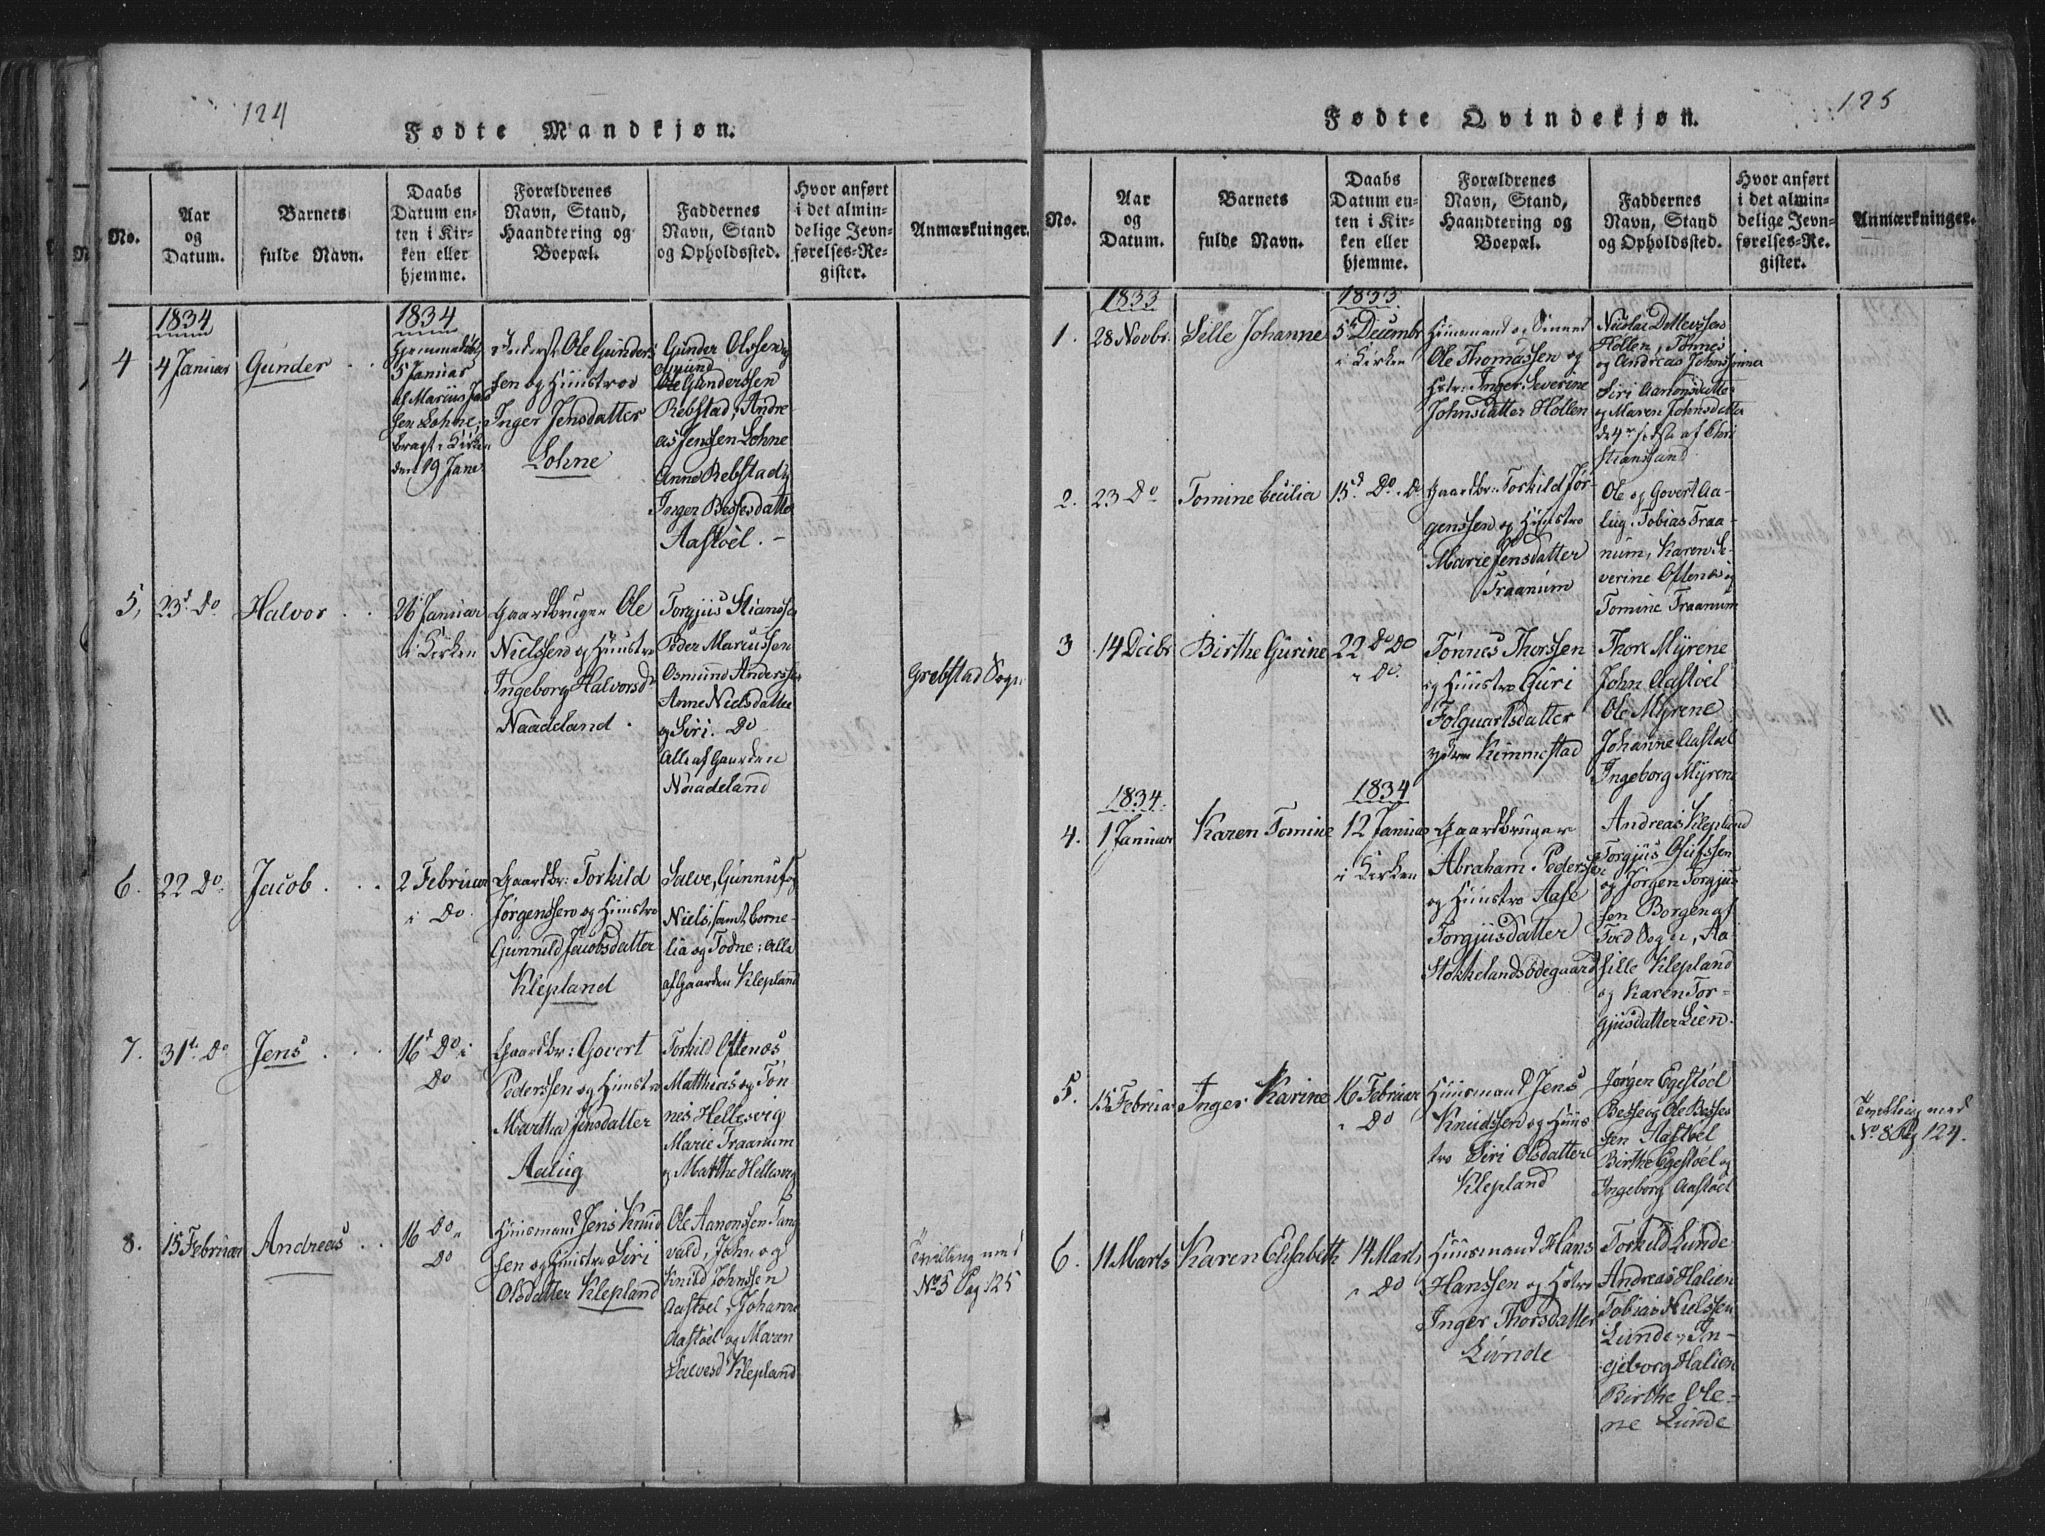 124
Fødte Mandkjøn.
No.
Aar
og
Datum.
Barnets
fulde Navn.
Daabs
Datum en-
ten i Kir-
ken eller
hjemme.
Forældrenes
Navn, Stand,
Haandtering og
Boepæl.
Faddernes
Navn, Stand
og Opholdssted.
Hvor anført
i det almin-
delige Jevn-
førelses-Re-
gister.
Anmærkninger.
1834
4
4 Januar
Gunder
1834
Hjemmedøbt
5 Januar
af Marius Jac
sen Lohne,
bragt i Kirken
den 19 Jan
Inderst Ole Gunders
sen og Huustroe
Inger Jensdatter
Lohne
Gunder Olssen og
Osmund
Ole Gunderssen
Rebstad, Andre-
as Jenssen Lohne
Anne Rebstad og
Inger Bessesdatter
Aastøel. -
5,
23d Do
Halvor
26 Januar
i Kirken
Gaardbruger Ole
Nielssen og Huustro
Ingeborg Halvorsdr
Naadeland.
Torgjus Stianssen
Peder Marcussen
Osmund Anderssen
Anne Nielsdatter
og Siri. Do
Alle af Gaarden
Naadeland
Grebstad Sogn
6.
22 Do
Jacob
2 Februar
i Do.
Gaardbr: Torkild
Jørgenssen og Huustro
Gunnild Jacobsdatter
Klepland
Salve, Gunnuf og
Niels, samt Corne-
lia og Todne; Alle
af Gaarden Klepland
7.
31te Do
Jens
16d Do i
Do
Gaardbr: Govert
Pederssen og Huustro
Martha Jensdatter
Aalug
Torkild Oftenæs
Matthias og Tøn
nes Hellesvig
Marie Traanum
og Marthe Hellesvig
8.
15 Februar
Andreas
16 Do
Do
Huusmand Jens Knud
sen og Huustro Siri
Olsdatter Klepland
Ole Aanonssen Tang
vald, John og
Knud Johnssen
Aastøel, Johanne
Aastøel og Maren
Salvesd Klepland
Tvilling med
No 5 Pag 125
125
Fødte Qvindekjøn.
No.
Aar
og
Datum.
Barnets
fulde Navn.
Daabs
Datum en-
ten i Kir-
ken eller
hjemme.
Forældrenes
Navn, Stand,
Haandtering og
Boepæl.
Faddernes
Navn, Stand
og Opholdssted.
Hvor anført
i det almin-
delige Jevn-
førelses-Re-
gister.
Anmærkninger.
1833
1.
28 Novbr.
Sille Johanne
1833.
5te Decembr
i Kirken
Huusmand og Smed
Ole Thomassen og
Hstr: Inger Severine
Johnsdatter Hollen
Nicolai Detlevssen
Hollen, Tønnes
og Andreas Johnssønner
Siri Aanonsdatter
og Maren Johnsdatter
de 4r sidste af Chri
stianssand
2.
23 Do
Tomine Cecilia
15d Do. Do
Gaardbr: Torkild Jør-
genssen og Huustro
Marie Jensdatter
Traanum
Ole og Govert Aa-
lug. Tobias Traa-
num, Karen Se-
verine Oftenæs og
Tomine Traanum
3
14 Decbr
Birthe Gurine
22 Do Do
Do.
Tønnes Thorssen
og Huustro Guri
Folquartsdatter
ydre Kimmestad
Thore Myrene
John Aastøel
Ole Myrene
Johanne Aastøel
Ingeborg Myrene
1834.
4.
1 Januar
Karen Tomine
1834
12 Januar
i Kirken
Gaardbruger
Abraham Pederssen
og Huustro Aase
Torgjusdatter
Stokkelandsødegaard
Andreas Klepland
Torgjus Olufssen
og Jørgen Torgjus-
sen Borgen af
Tved Sogn, Aa-
sille Klepland
og Karen Tor-
gjusdatter Lien.
5.
15 Februar
Inger Karine
16 Februar
Do
Huusmand Jens
Knudssen og Huus-
tro Siri Olsdatter
Klepland
Jørgen Egestøel
Besse og Ole Besses
sen Aastøel
Birthe Egestøel og
Ingeborg Aastøel
Tvilling med
No 8 Pag 124.
6.
11 Marts
Karen Elisabeth
14 Marts
Do
Huusmand Hans
Hanssen og Hstro
Inger Thorsdatter
Lunde
Torkild Lunde
Andreas Halien
Tobias Nielssen
Lunde, In-
geborg Halien
Birthe Ole-
ne Lunde